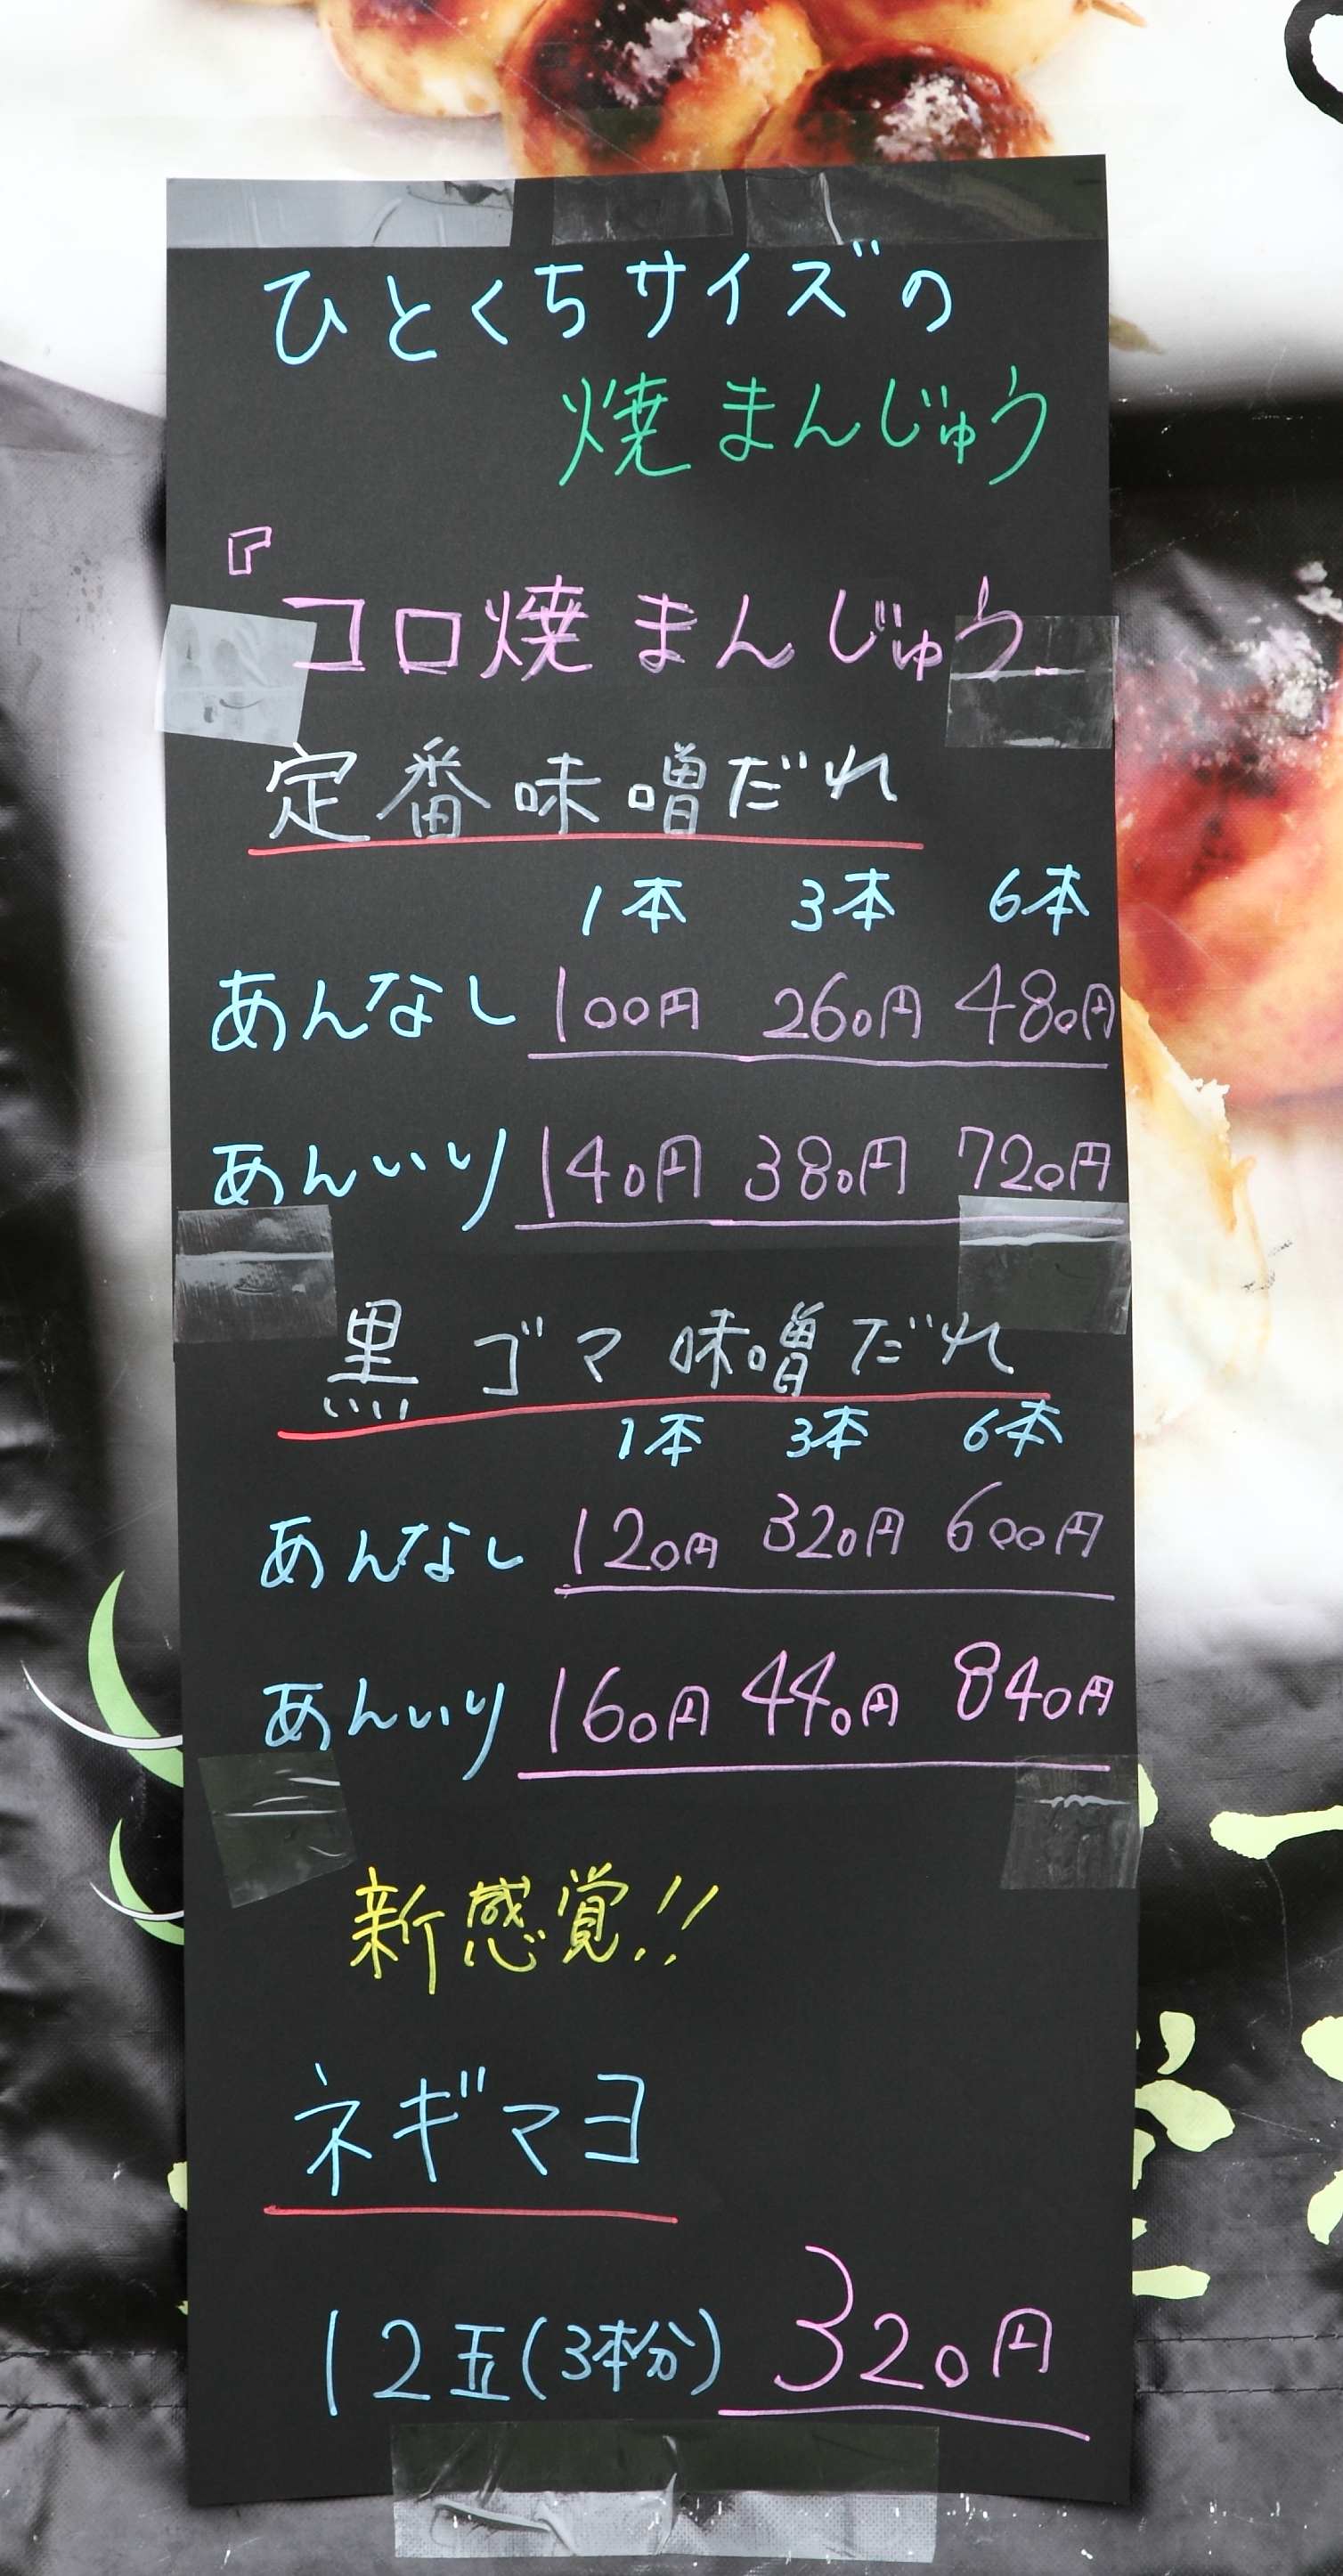 ひとくちサイズの
焼まんじゅう
『コロ焼まんじゅう
定番味噌だれ
1本 3本 6本
あんなし 100円 260円 480円
あんいり 140円 380円 720円
黒ゴマ味噌だれ
1本 3本 6本
あんなし 120円 320円 600円
あんいり 160円 440円 840円
新感覚!!
ネギマヨ
12玉(3本分) 320円